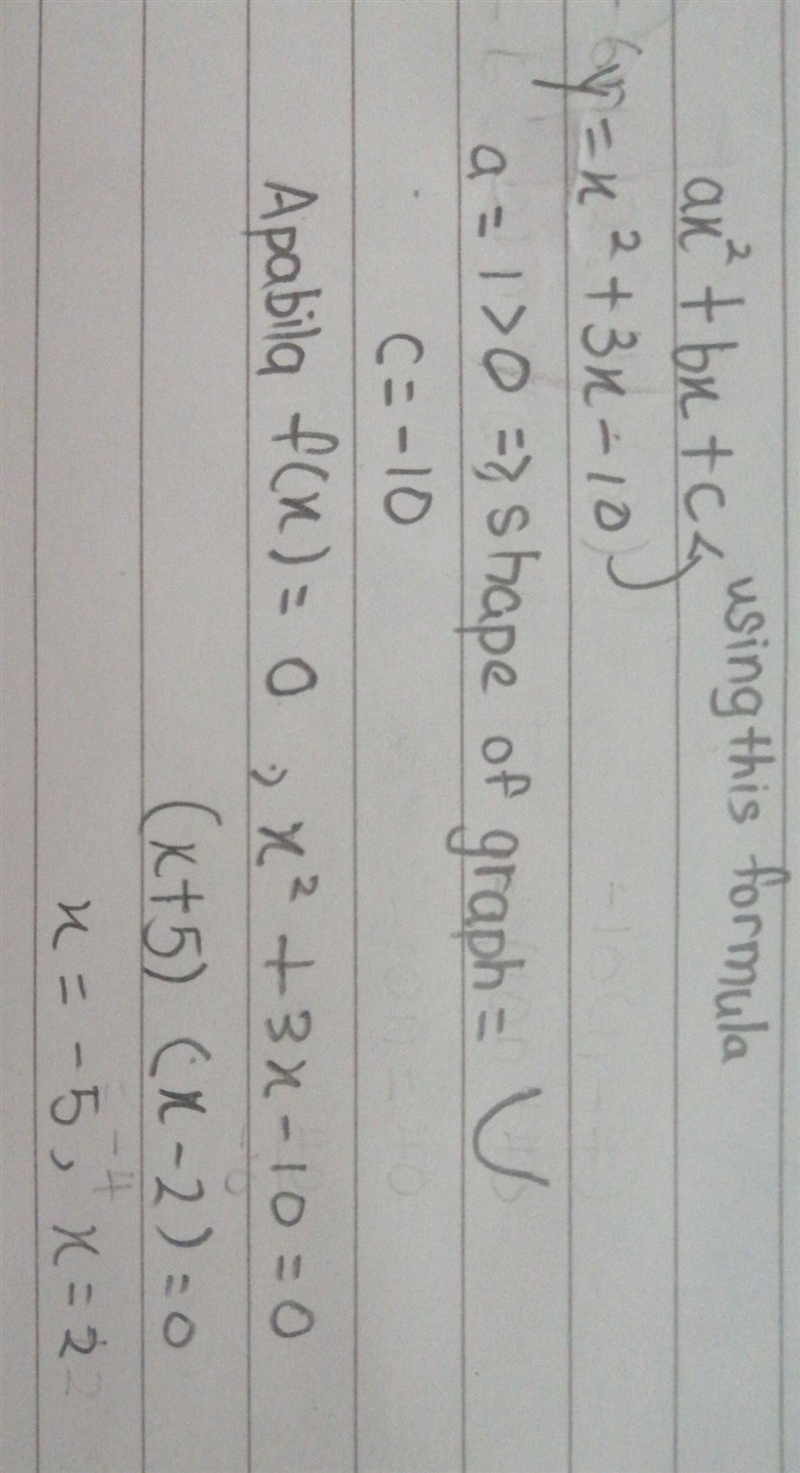 ax² + bx + c
using this formula
y = x² + 3x - 10
a = 1 > 0 => shape of graph = ∪
c = -10
Apabila f(x) = 0 , x² + 3x - 10 = 0
(x+5) (x-2) = 0
x = -5, x = 2